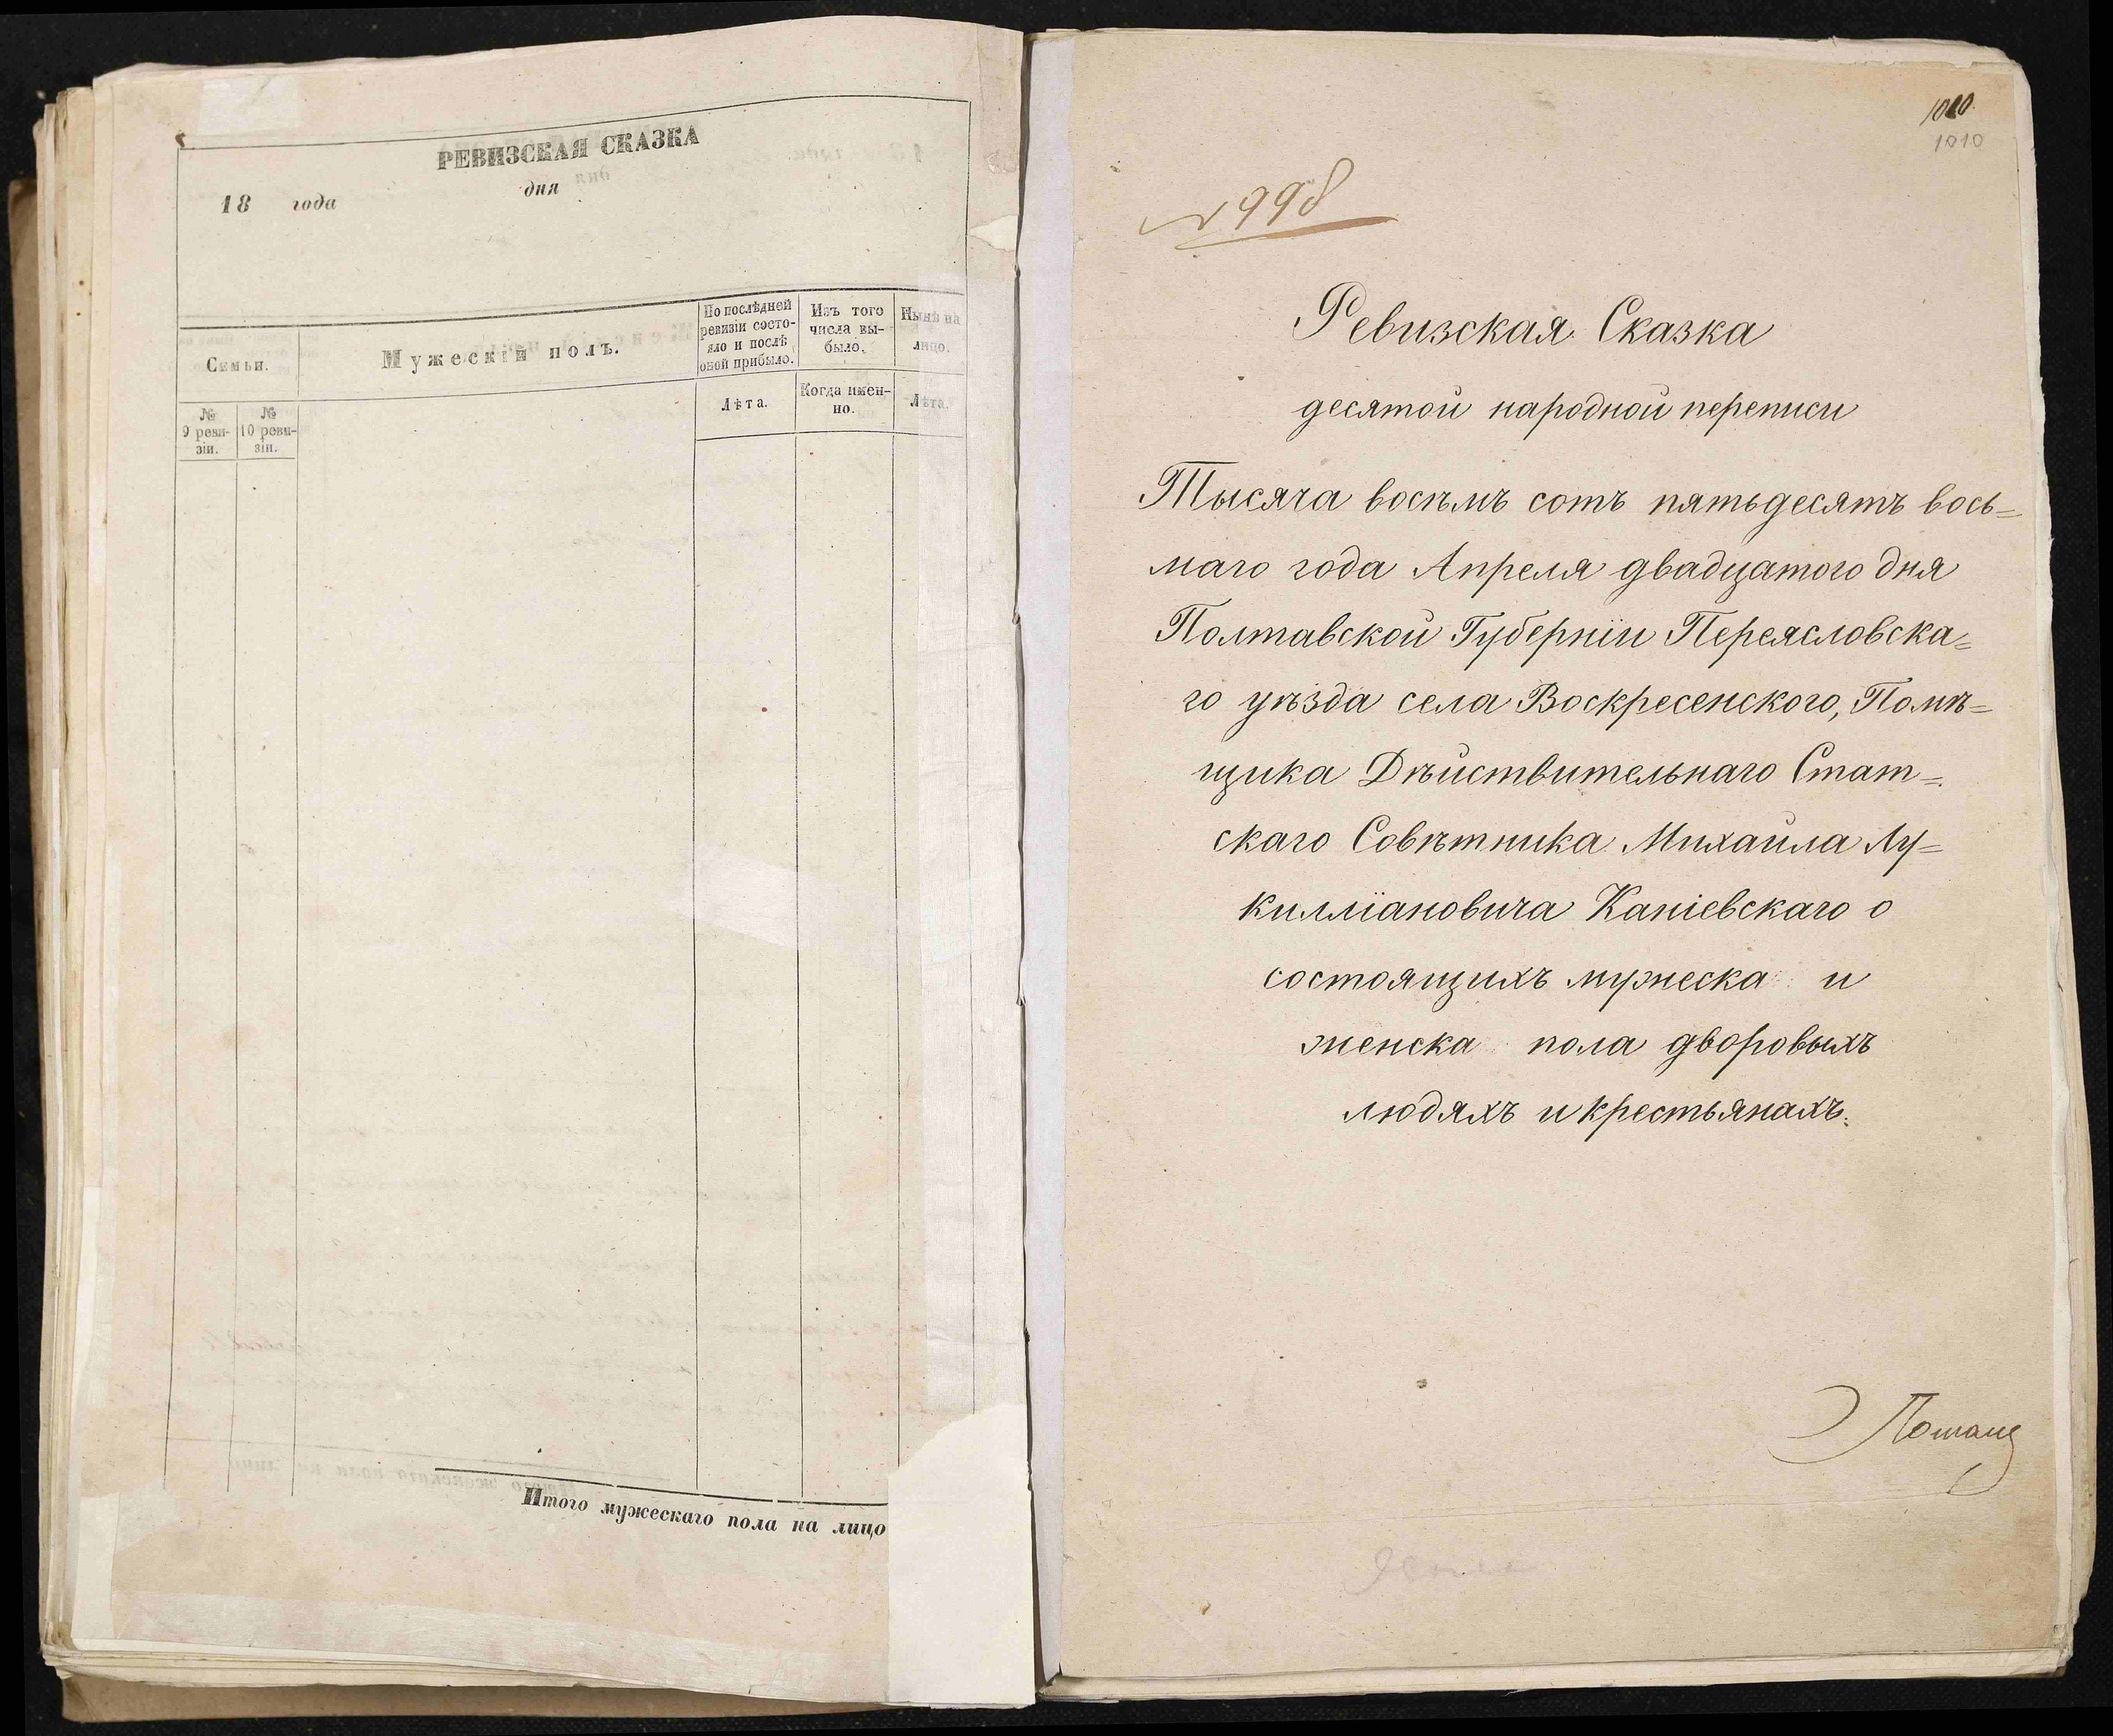 РЕВИЗСКАЯ СКАЗКА
18 года дня
Семьи.
Мужескій полъ.
По послѣдней
ревизіи состо-
яло и послѣ
оной прибыло.
Изъ того
числа вы-
было.
Нынѣ на
лицо.
№
9 реви-
зіи.
№
10 реви-
зіи.
Лѣта.
Когда имен-
но.
Лѣта.
Итого мужескаго пола на лицо
1010
№ 998
Ревизская Сказка
десятой народной переписи
Тысяча восѣмъ сотъ пятьдесятъ вось=
маго года Апреля двадцатого дня
Полтавской Губерніи Переясловска=
го уѣзда села Воскресенского, Помѣ=
щика Дѣйствительнаго Стат=
скаго Совѣтника Михаила Лу=
килліановича Каніевскаго о
состоящихъ мужеска и
женска пола дворовыхъ
людяхъ и крестьянахъ.